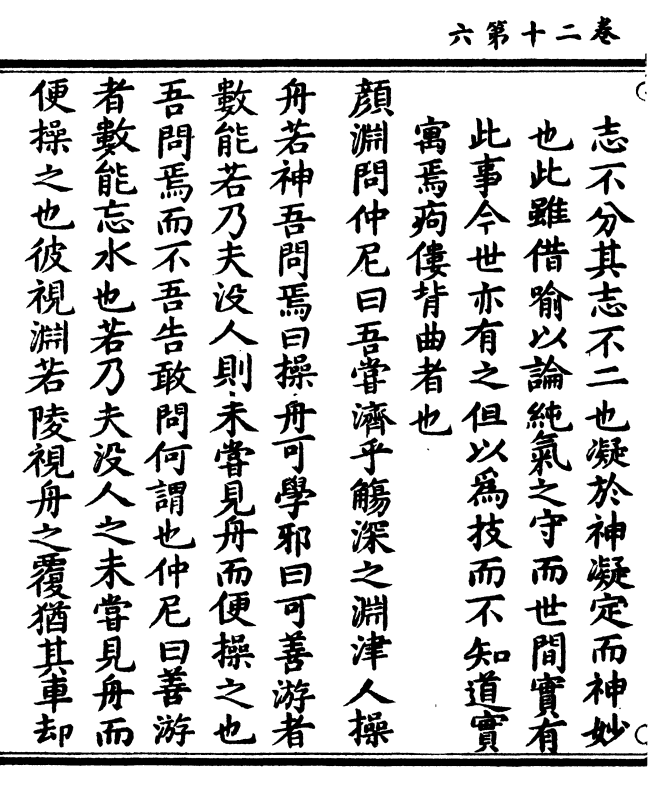 卷二十第六
志不分其志不二也凝於神凝定而神妙
也此雖借喻以論純氣之守而世間實有
此事今世亦有之但以為技而不知道實
寓焉痀僂背曲者也
顏淵問仲尼曰吾嘗濟乎觴深之淵津人操
舟若神吾問焉曰操舟可學邪曰可善游者
數能若乃夫没人則未嘗見舟而便操之也
吾問焉而不吾告敢問何謂也仲尼曰善游
者數能忘水也若乃夫没人之未嘗見舟而
便操之也彼視淵若陵視舟之覆猶其車却